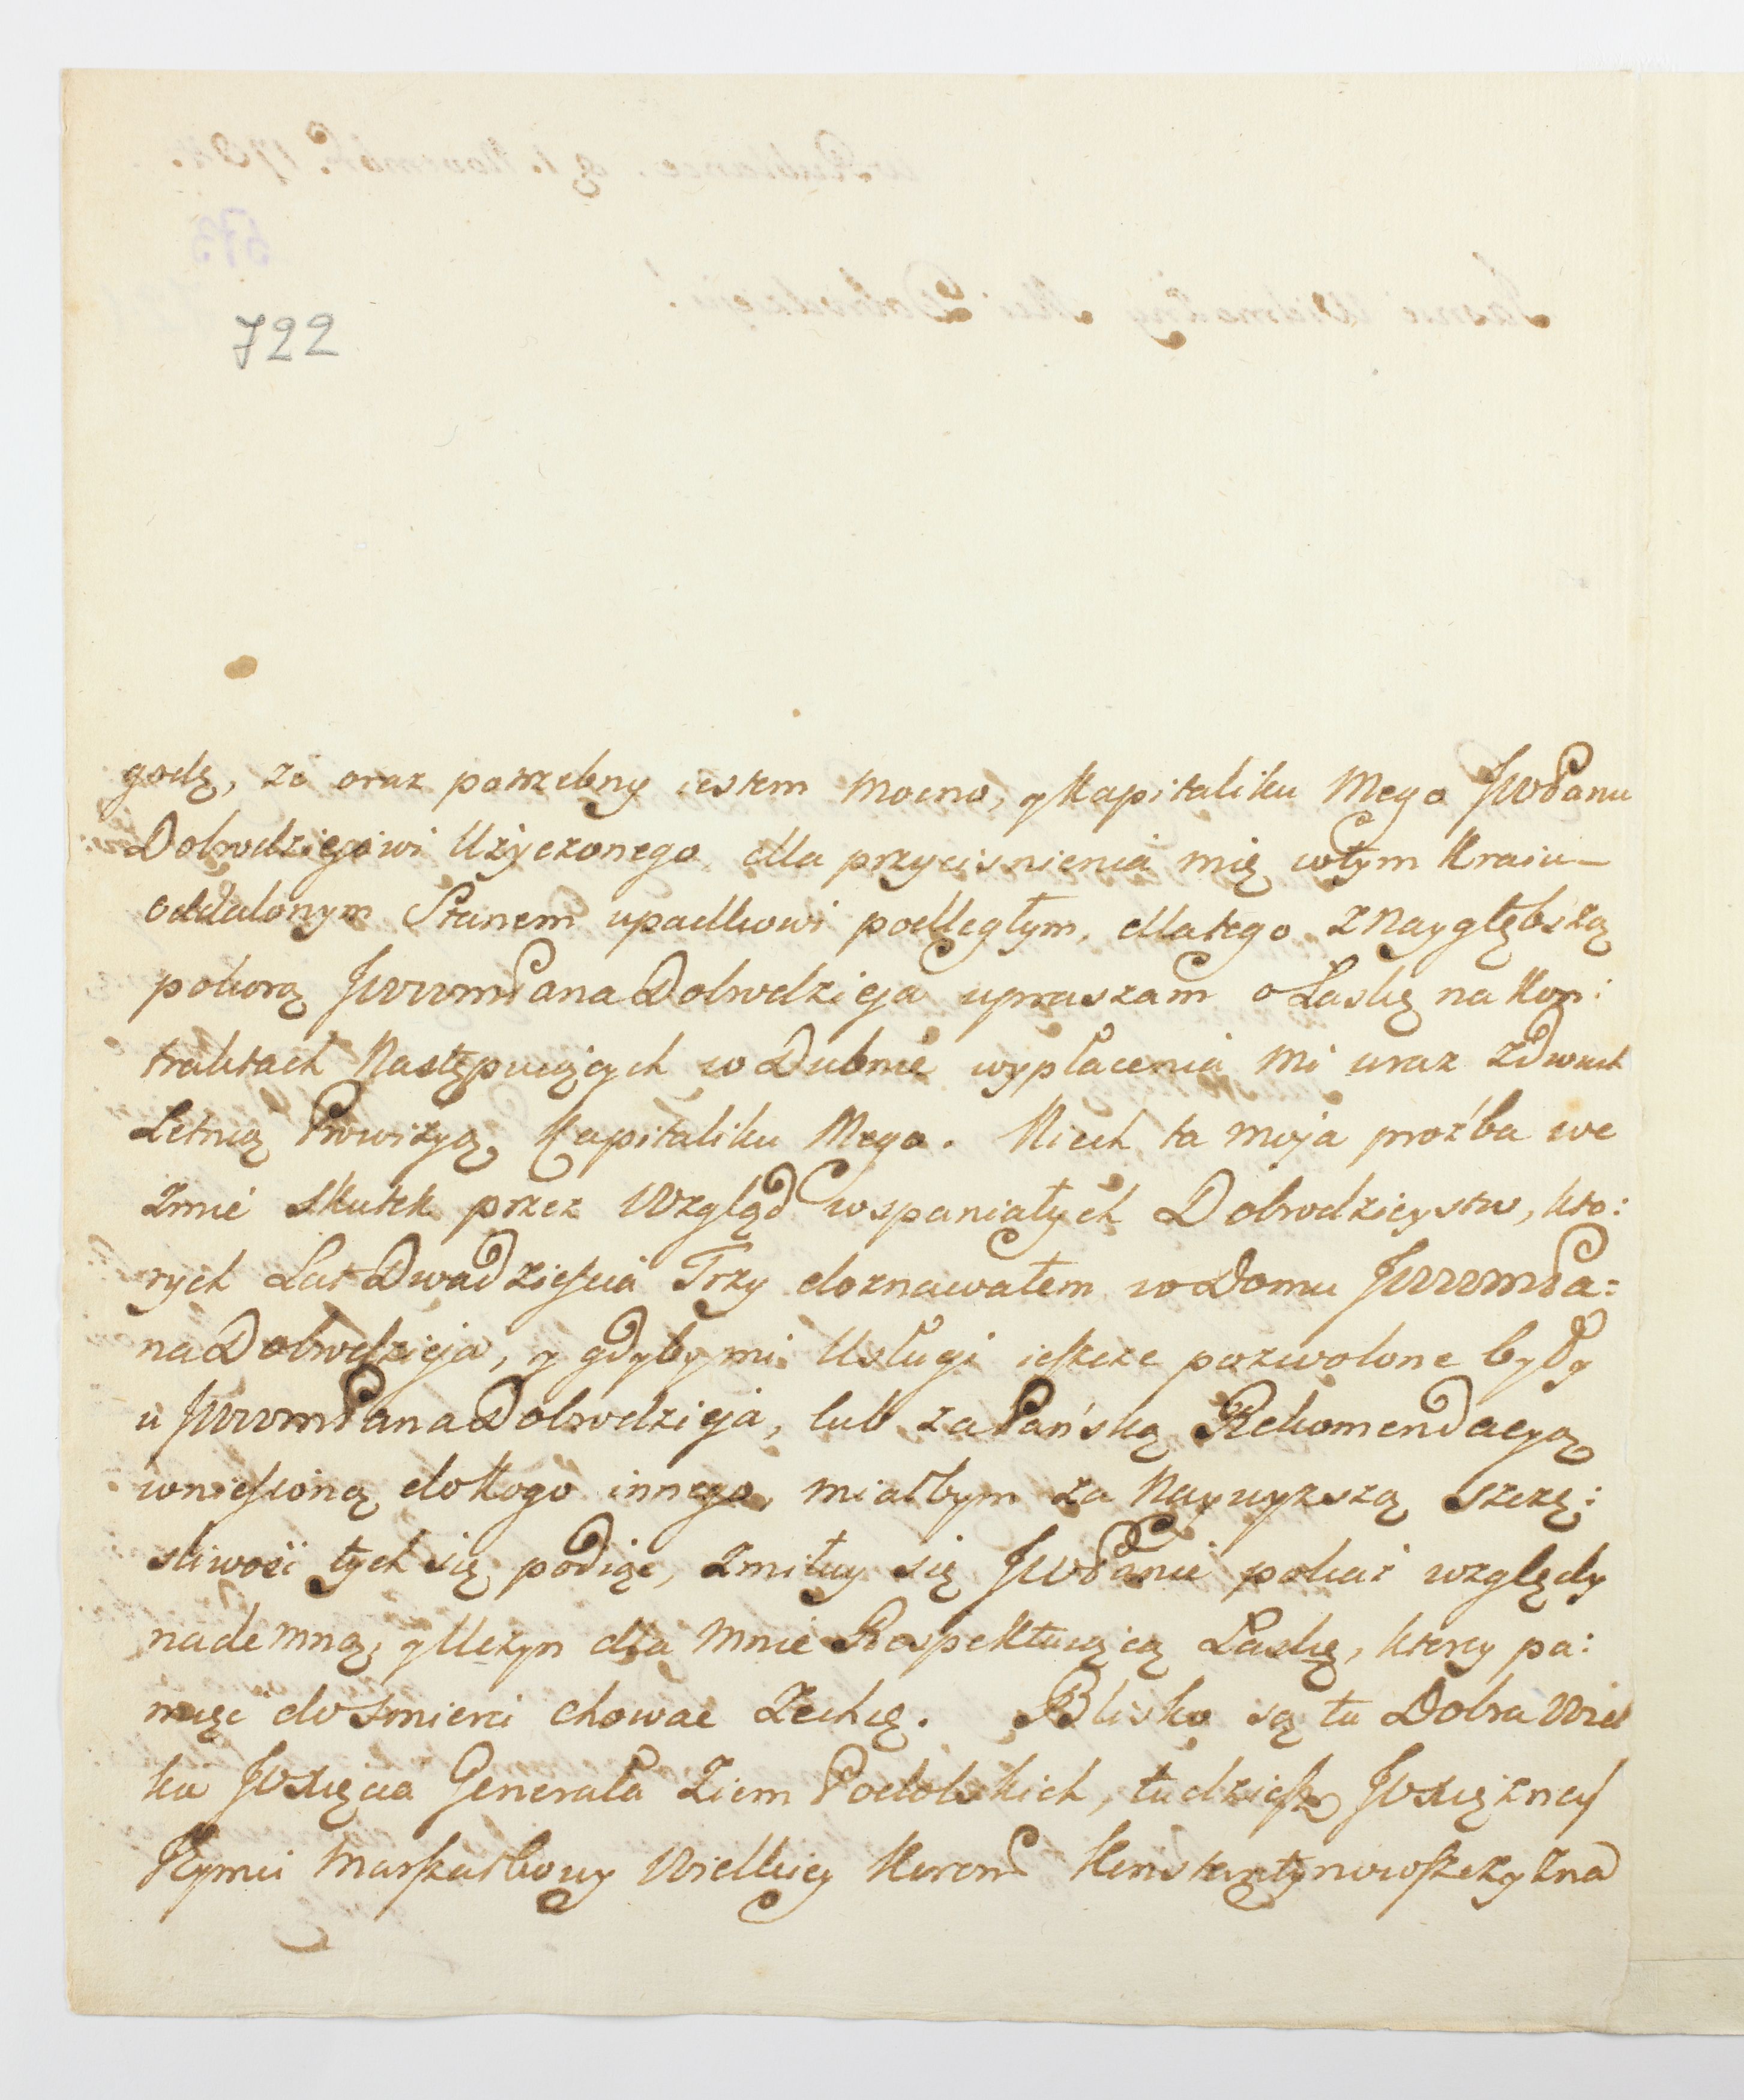 722
godę, że oraz potrzebny iestem mocno, y Kapitaliku Mego JWPanu
Dobrodziejowi Użyczonego dla przycisnienia mię w tym Kraiu
oddalonym Stanem upadkowi podległym, dlatego z Naygłębszą
pokorą JWWMPana Dobrodzieja upraszam o Łaskę na Kon:
traktach Następuiących w Dubnie wypłacenia mi uraz z dwuch
Letnią Prowizyą, Kapitaliku Mego. Niech ta moja proźba we
zmie skutek przez Wzgląd wspaniałych Dobrodzieystw, kto:
rych Lat Dwadzieścia Trzy doznawałem w Domu JWWMPa:
na Dobrodzieja, y gdyby mi Usługi ieszcze pozwolone były
u JWWMPana Dobrodzieja, lub za Pańską Rekomendacyą
wniesioną do Kogo innego, miałbym za Naywyższą szczę:
śliwość tych się podiąć, zmiłuy się JWPanie pokaż względy
nademną, y Uczyn dla mnie Respektuiącą Łaskę, ktorey pa:
mięć do śmierci chować Zechcę. Blisko są tu Dobra Wiel
kie JOXięcia Generała Ziem Podolskich, tudzież JOXiężney
Jeymci Marszałkowy Wielkiey Koronn Konstantynowszczyzna